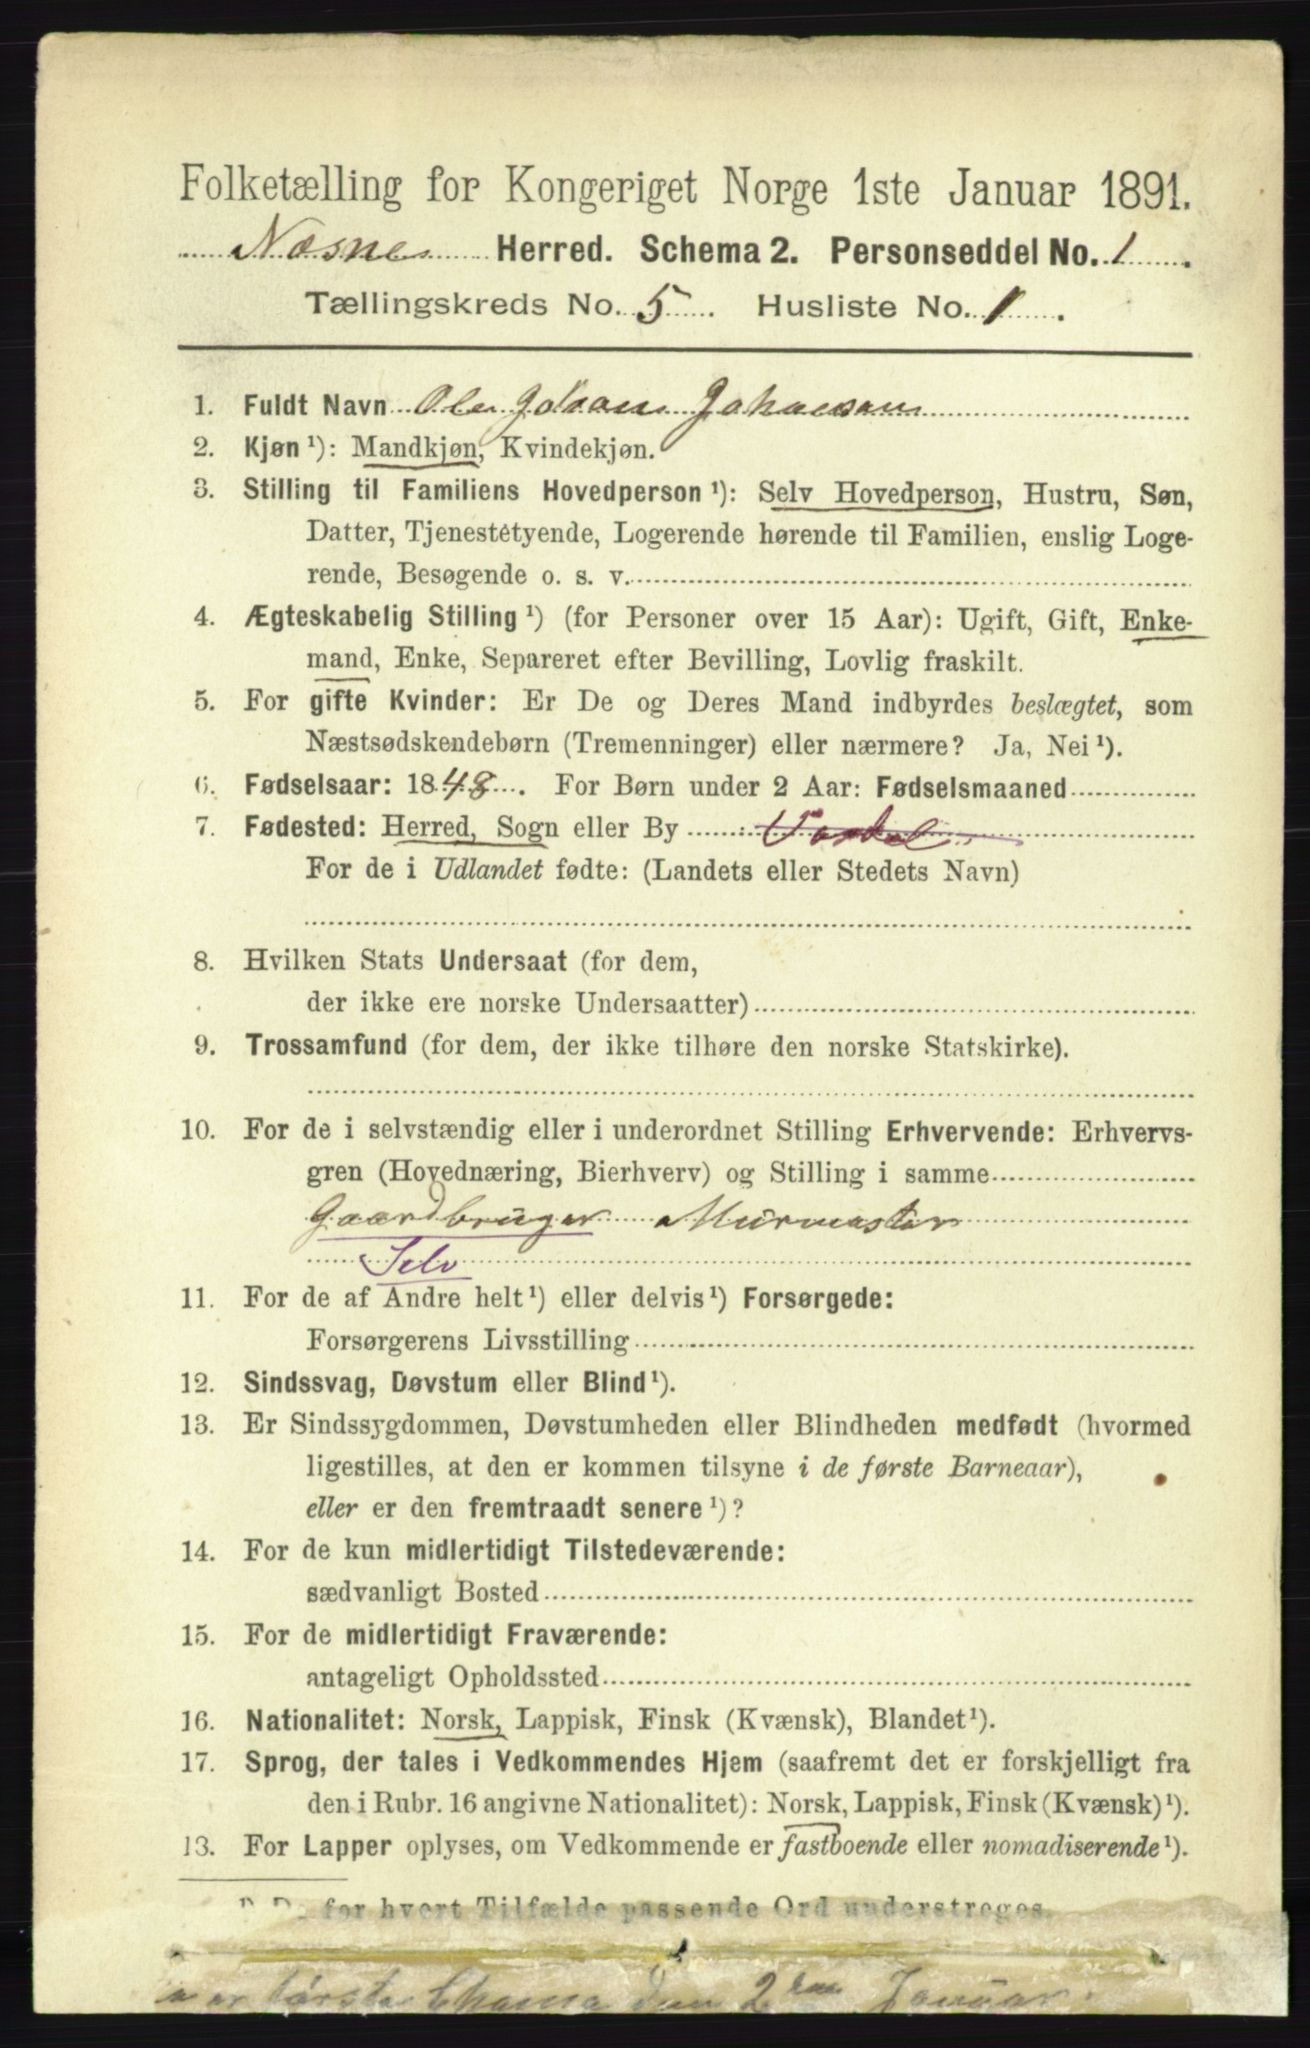 Folketælling for Kongeriget Norge 1ste Januar 1891.
Næsne Herred. Schema 2. Personseddel No. 1.
Tællingskreds No. 5. Husliste No. 1.
1. Fuldt Navn Ole Johan Johansen
2. Kjøn ¹): Mandkjøn, Kvindekjøn.
3. Stilling til Familiens Hovedperson ¹): Selv Hovedperson, Hustru, Søn,
Datter, Tjenestetyende, Logerende hørende til Familien, enslig Loge-
rende, Besøgende o. s. v.
4. Ægteskabelig Stilling ¹) (for Personer over 15 Aar): Ugift, Gift, Enke-
mand, Enke, Separeret efter Bevilling, Lovlig fraskilt.
5. For gifte Kvinder: Er De og Deres Mand indbyrdes beslægtet, som
Næstsødskendebørn (Tremenninger) eller nærmere? Ja, Nei ¹).
6. Fødselsaar: 1848. For Børn under 2 Aar: Fødselsmaaned
7. Fødested: Herred, Sogn eller By
For de i Udlandet fødte: (Landets eller Stedets Navn)
8. Hvilken Stats Undersaat (for dem,
der ikke ere norske Undersaatter)
9. Trossamfund (for dem, der ikke tilhøre den norske Statskirke).
10. For de i selvstændig eller i underordnet Stilling Erhvervende: Erhvervs-
gren (Hovednæring, Bierhverv) og Stilling i samme
Gaardbruger Murmester
Selv
11. For de af Andre helt ¹) eller delvis ¹) Forsørgede:
Forsørgerens Livsstilling
12. Sindssvag, Døvstum eller Blind ¹).
13. Er Sindssygdommen, Døvstumheden eller Blindheden medfødt (hvormed
ligestilles, at den er kommen tilsyne i de første Barneaar),
eller er den fremtraadt senere ¹)?
14. For de kun midlertidigt Tilstedeværende:
sædvanligt Bosted
15. For de midlertidigt Fraværende:
antageligt Opholdssted
16. Nationalitet: Norsk, Lappisk, Finsk (Kvænsk), Blandet ¹).
17. Sprog, der tales i Vedkommendes Hjem (saafremt det er forskjelligt fra
den i Rubr. 16 angivne Nationalitet): Norsk, Lappisk, Finsk (Kvænsk) ¹).
13. For Lapper oplyses, om Vedkommende er fastboende eller nomadiserende ¹).
for hvert Tilfælde passende Ord understreges.
er første den 2den Januar